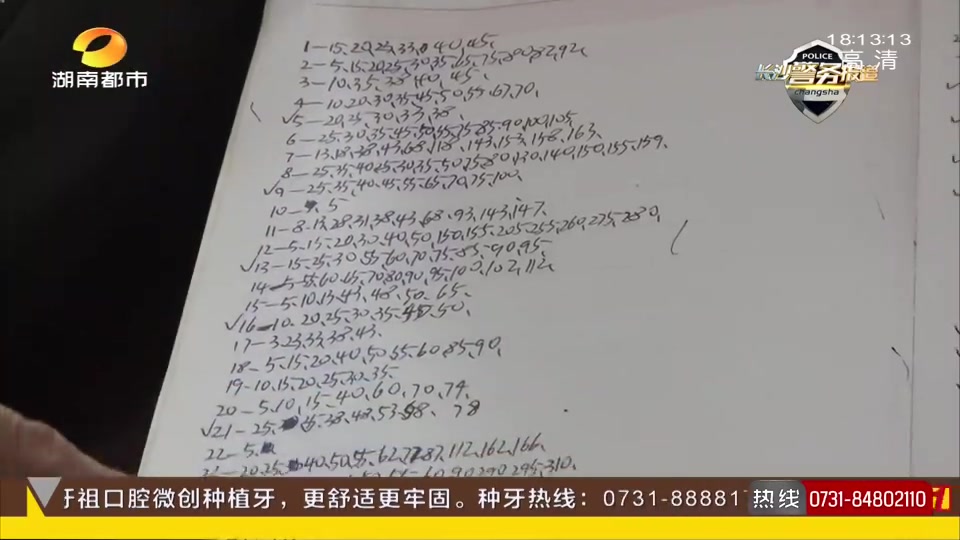 湖南都市
18:13:13
高清
POLICE
长沙警务报道
changsha
1—15、20、25、33、040、45、
2—5、15、20、25、30、35、65、75、80、82、92、
3—10、35、38、40、45、
4—10、20、30、35、45、50、55、67、70、
√5—20、25、30、33、38、
6—25、30、35、45、50、55、75、85、90、100、105、
7—13、18、38、43、68、118、143、153、158、163、
8—25、35、40、25、30、35、50、75、80、130、140、150、155、159、
√9—25、35、40、45、55、65、70、75、100、
10—5
11—8、13、28、31、38、43、68、93、143、147、
12—5、15、20、30、40、50、150、155、205、255、260、275、280、
√13—15、25、30、55、60、70、75、85、90、95、
14—5、55、60、65、70、80、90、95、100、102、112、
15—5、10、13、43、48、50、65、
√16—10、20、25、30、35、45、50、
17—3、23、33、38、43、
18—5、15、20、40、50、55、60、85、90、
19—10、15、20、25、30、35、
20—5、10、15、40、60、70、74、
√21—25、38、48、53、58、78
22—5、
40、50、55、62、77、87、112、162、166、
20、25、
60、90、290、295、310、
祖口腔微创种植牙，更舒适更牢固。种牙热线：0731-88881
热线 0731-84802110